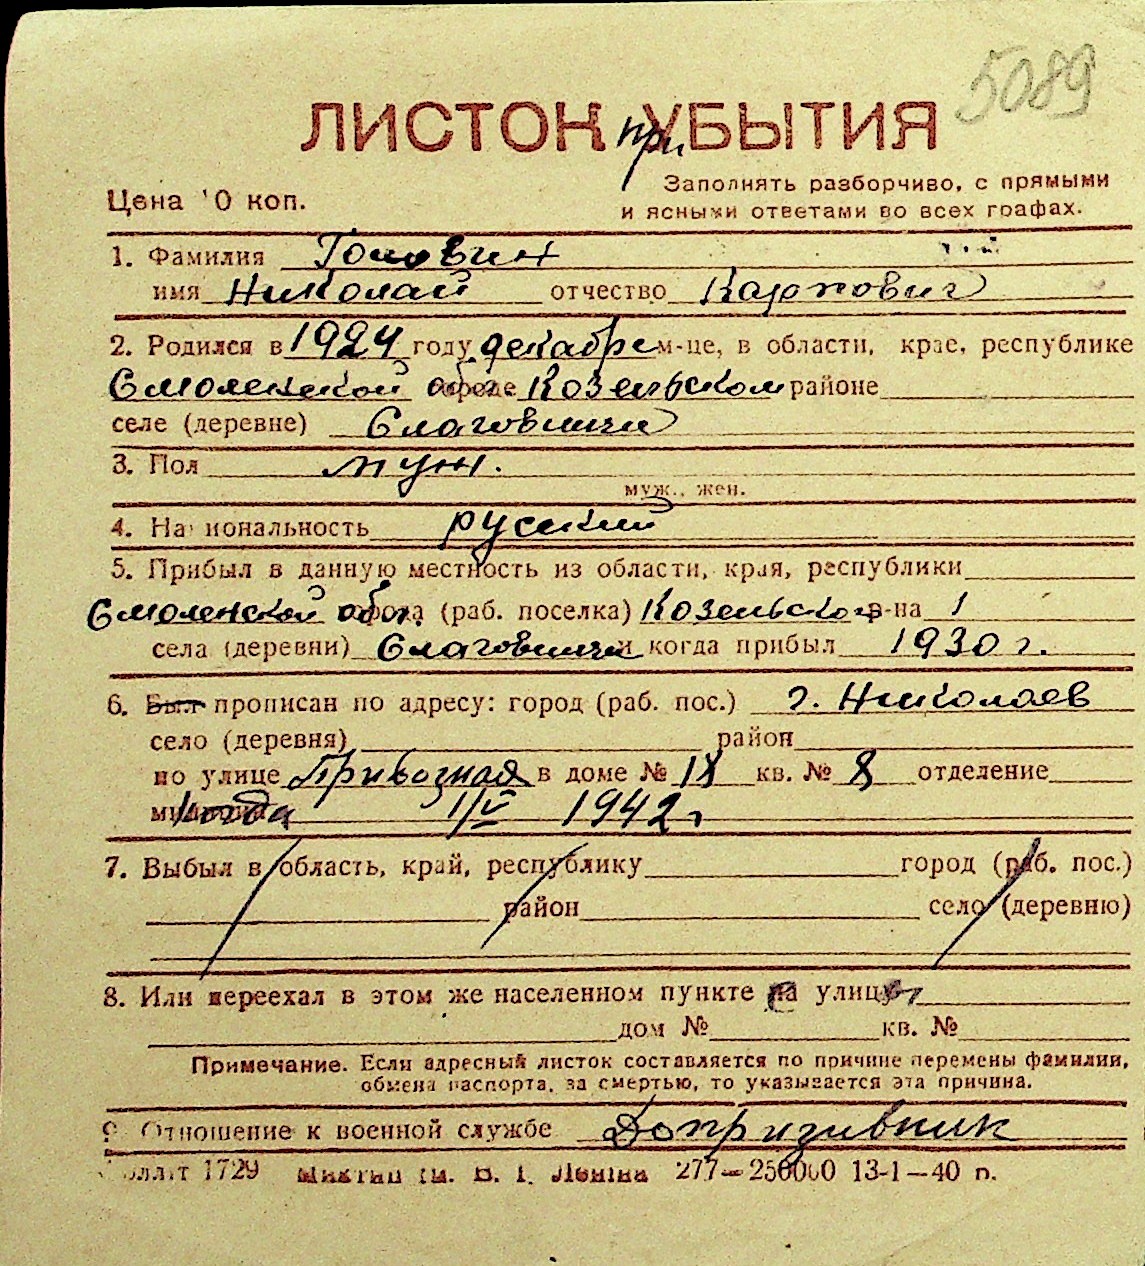 5089
ЛИСТОК при УБЫТИЯ
Цена 10 коп.
Заполнять разборчиво, с прямыми
и ясными ответами во всех графах.
1. Фамилия Головин
имя Николай отчество Карпович
2. Родился в 1924 году декабре м-це, в области, крае, республике
Смоленской обл. городе Козельском районе
селе (деревне)
3. Пол муж.
муж., жен.
4. Национальность русский
5. Прибыл в данную местность из области, края, республики
Смоленской обл. города (раб. поселка) Козельского р-на 1
села (деревни) и когда прибыл 1930 г.
6. Был прописан по адресу: город (раб. пос.) г. Николаев
село (деревня) район
по улице Привозная в доме № 18 кв. № 8 отделение
милиции Когда 1/V 1942 г
7. Выбыл в область, край, республику город (раб. пос.)
район село (деревню)
8. Или переехал в этом же населенном пункте на улицу
дом № кв. №
Примечание. Если адресный листок составляется по причине перемены фамилии,
обмена паспорта, за смертью, то указывается эта причина.
9. Отношение к военной службе Допризивник
1729 Ленина 277—250000 13-1—40 р.